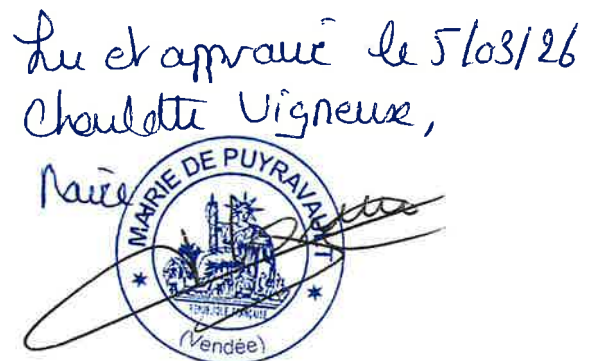 Lu et approuvé le 5/03/26
Choulette Vigneux,
Maire
MAIRIE DE PUYRAVAULT
RÉPUBLIQUE FRANÇAISE
(Vendée)